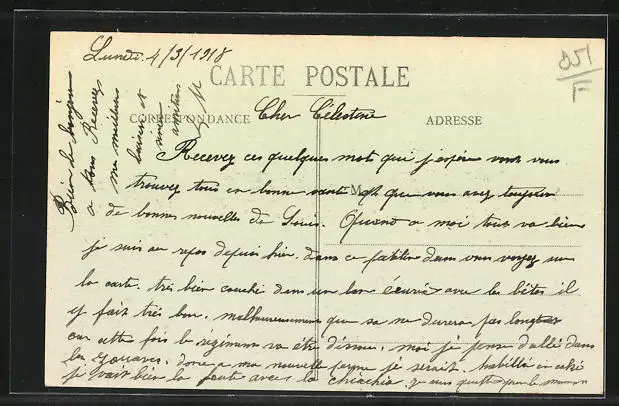 Lundi 4/3/1918
CARTE POSTALE
CORRESPONDANCE
ADRESSE
Cher Célestine
Recevez ces quelques mots qui j'espère vont vous
trouvez tous en bonne santé et que vous avez toujours
de bonnes nouvelle de Louis. Quand a moi tout va bien
je suis au repos depuis hier. dans ce patelin dans vous voyez sur
la carte. très bien couché dans un bon écurie avec les bêtes il
y fait très bon. malheureusement que sa ne durera pas longtemps
car cette fois le régiment va être dissous, moi je pense d'allé dans
les zouaves. donc a ma nouvelle je serait habillé en kaki
je vait bien la avec la chéchia. je vous quitte pour le moment
Bien de
a tous Recevez
ma meilleur
baiser et
amitiés